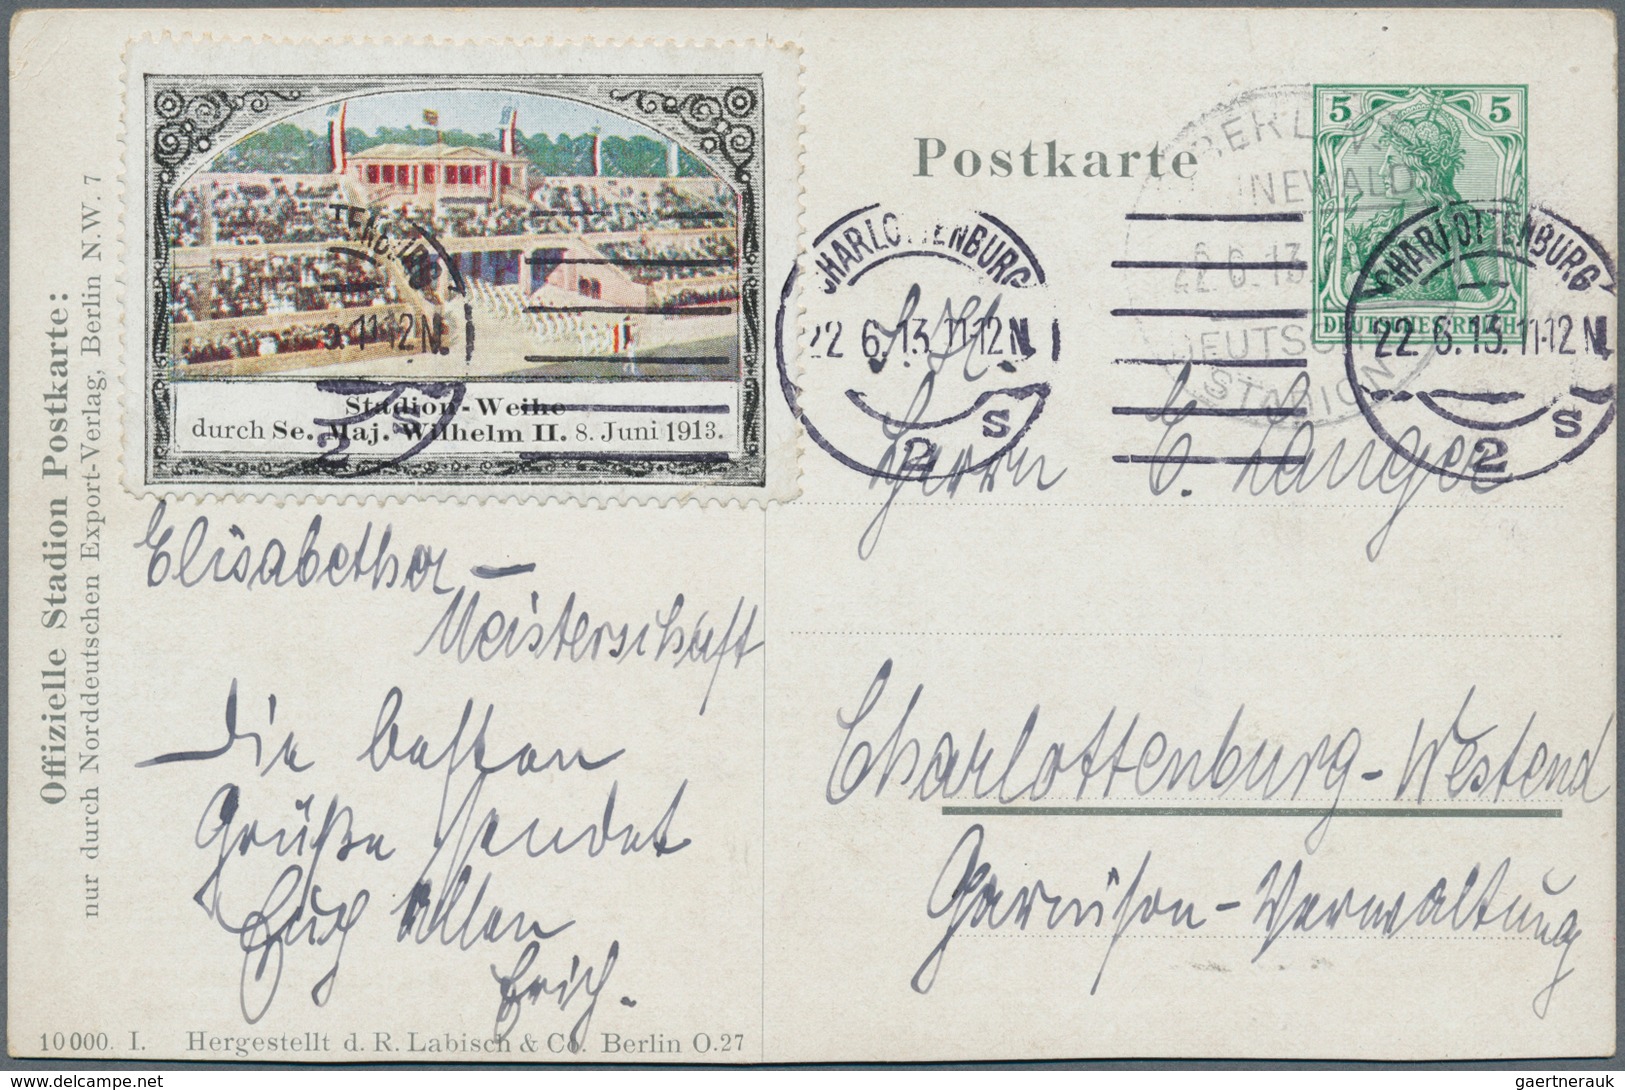 Offizielle Stadion Postkarte:
nur durch Norddeutschen Export-Verlag, Berlin N.W. 7
Stadion-Weihe
durch Se. Maj. Wilhelm II. 8. Juni 1913.
Postkarte
5 5
DEUTSCHES REICH
BERLIN
GRUNEWALD
22.6.13
DEUTSCHES
STADION
CHARLOTTENBURG
22.6.13.11-12N.
2 s
CHARLOTTENBURG
22.6.13.11-12N.
2 s
TENBURG
3.11-12N.
2 s
Herrn C. Langee
Charlottenburg-Westend
Garnison-Verwaltung
Elisabether-
Meisterschaft
Die besten
Grüße sendet
Euch allen
Erich.
10000. I. Hergestellt d. R. Labisch & Co. Berlin O.27
delcampe.net
gaertnerauk